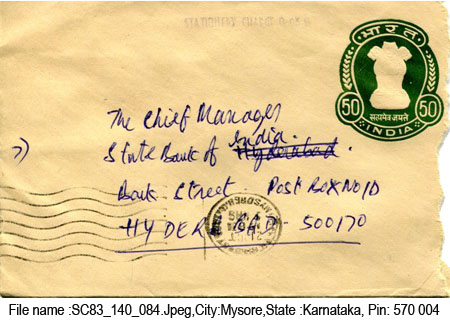 भारत
50 50
सत्यमेव जयते
INDIA
The Chief Manager
State Bank of Hyderabad India.
Bank Street Post Box No 10
HYDERABAD 500170
File name :SC83_140_084.Jpeg,City:Mysore,State :Karnataka, Pin: 570 004